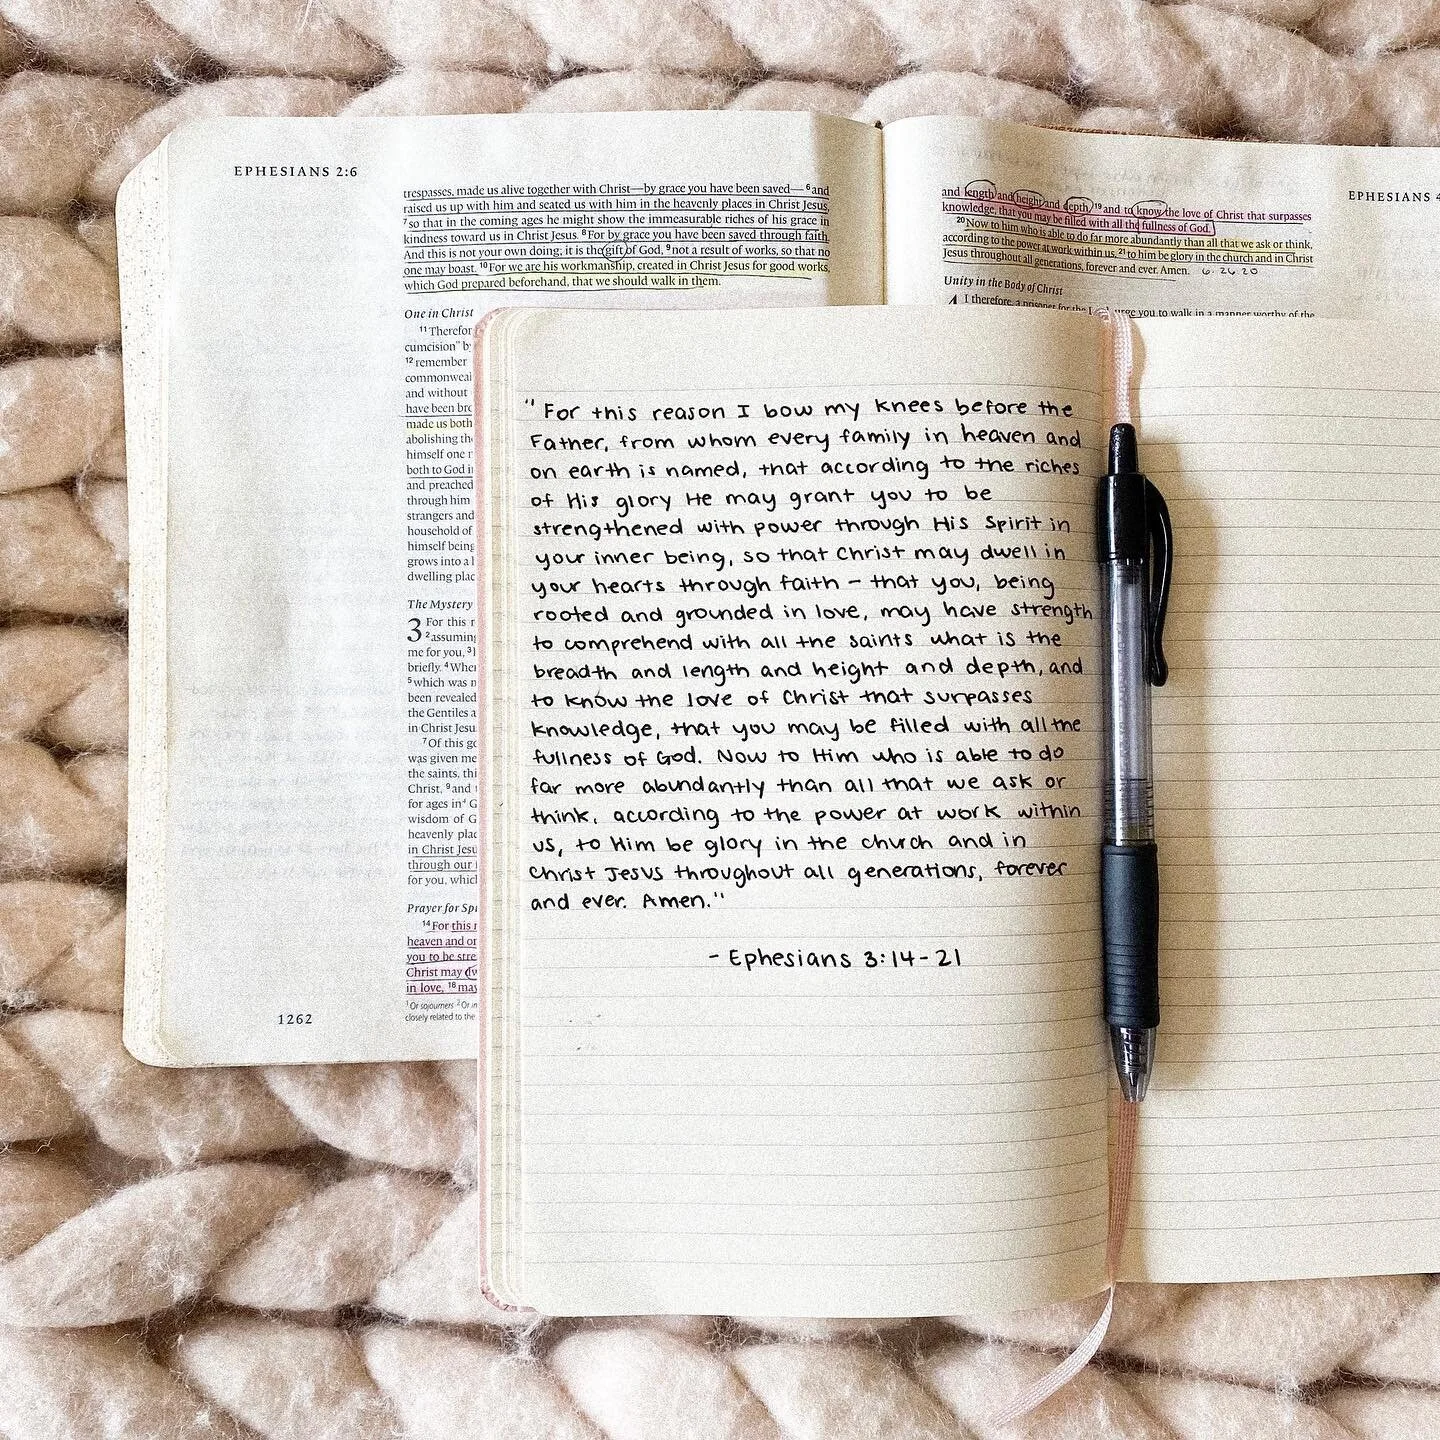 EPHESIANS 2:6
trespasses, made us alive together with Christ—by grace you have been saved— 6 and
raised us up with him and seated us with him in the heavenly places in Christ Jesus,
7 so that in the coming ages he might show the immeasurable riches of his grace in
kindness toward us in Christ Jesus. 8 For by grace you have been saved through faith.
And this is not your own doing; it is the gift of God, 9 not a result of works, so that no
one may boast. 10 For we are his workmanship, created in Christ Jesus for good works,
which God prepared beforehand, that we should walk in them.
One in Christ
11 Therefor
cumcision" by
12 remember
commonweal
and without
have been bro
made us both
abolishing the
himself one n
both to God i
and preached
through him
strangers and
household of
himself being
grows into a
dwelling plac
The Mystery
3 For this r
2 assuming
me for you, 3
briefly. 4 Whe
5 which was n
been revealed
the Gentiles a
in Christ Jesu
7 Of this go
was given me
the saints, thi
Christ, 9 and
for ages in G
wisdom of G
heavenly plac
in Christ Jesu
through our
for you, whic
Prayer for Spi
14 For this r
heaven and or
you to be stre
Christ may dw
in love, 18 may
1 Or sojourners 2 Or in
closely related to the
1262
EPHESIANS 4
and length and height and depth, 19 and to know the love of Christ that surpasses
knowledge, that you may be filled with all the fullness of God.
20 Now to him who is able to do far more abundantly than all that we ask or think,
according to the power at work within us, 21 to him be glory in the church and in Christ
Jesus throughout all generations, forever and ever. Amen. 6.26.20
Unity in the Body of Christ
4 I therefore, a prisoner for the urge you to walk in a manner worthy of the
"For this reason I bow my knees before the
Father, from whom every family in heaven and
on earth is named, that according to the riches
of His glory He may grant you to be
strengthened with power through His Spirit in
your inner being, so that Christ may dwell in
your hearts through faith - that you, being
rooted and grounded in love, may have strength
to comprehend with all the saints what is the
breadth and length and height and depth, and
to know the love of Christ that surpasses
knowledge, that you may be filled with all the
fullness of God. Now to Him who is able to do
far more abundantly than all that we ask or
think, according to the power at work within
us, to Him be glory in the church and in
Christ Jesus throughout all generations, forever
and ever. Amen."
- Ephesians 3:14-21